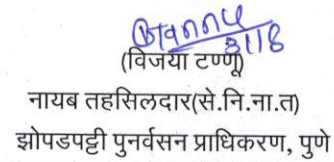 3118
(विजया टण्णू)
नायब तहसिलदार(से.नि.ना.त)
झोपडपट्टी पुनर्वसन प्राधिकरण, पुणे